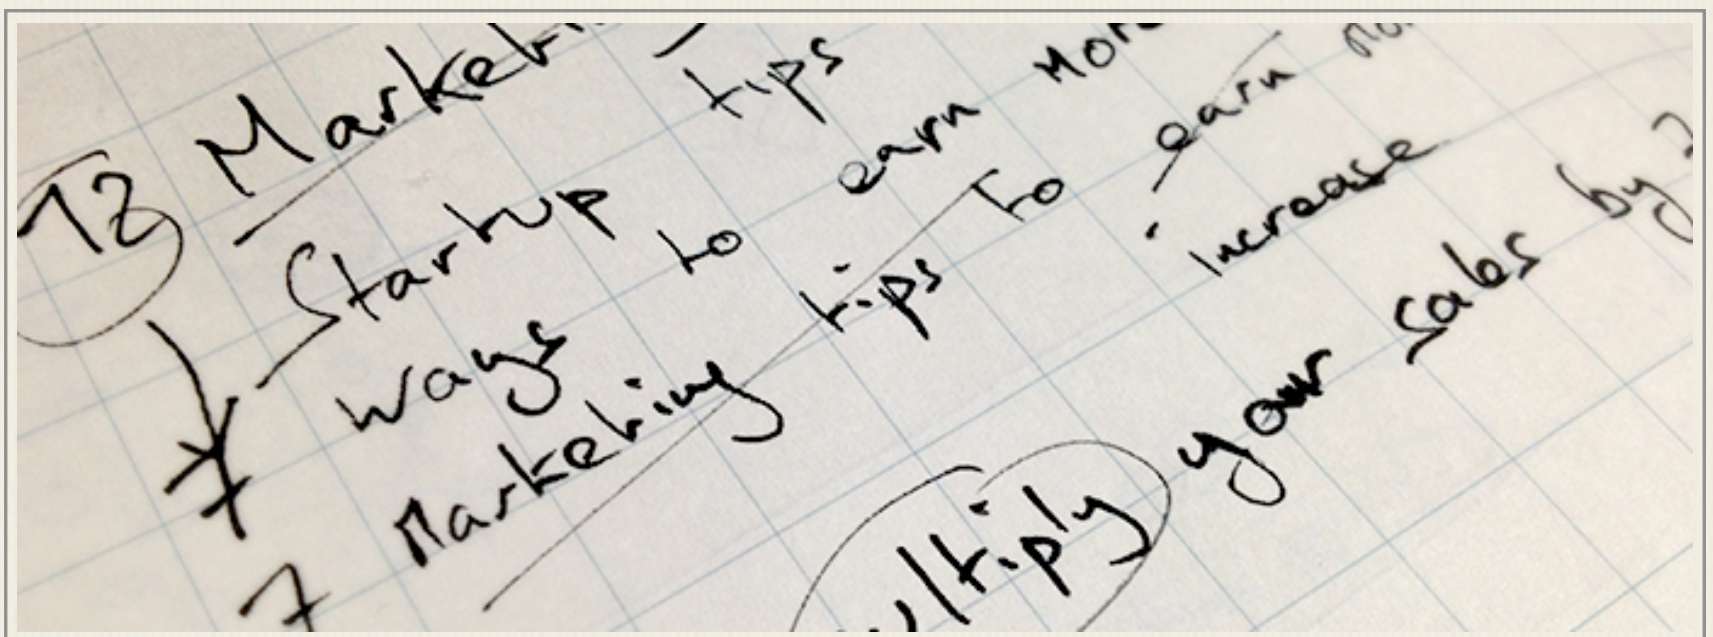 12 Marketi
Startup tips
7 ways to earn More
7 Marketing tips to earn
increase
ultiply your sales by